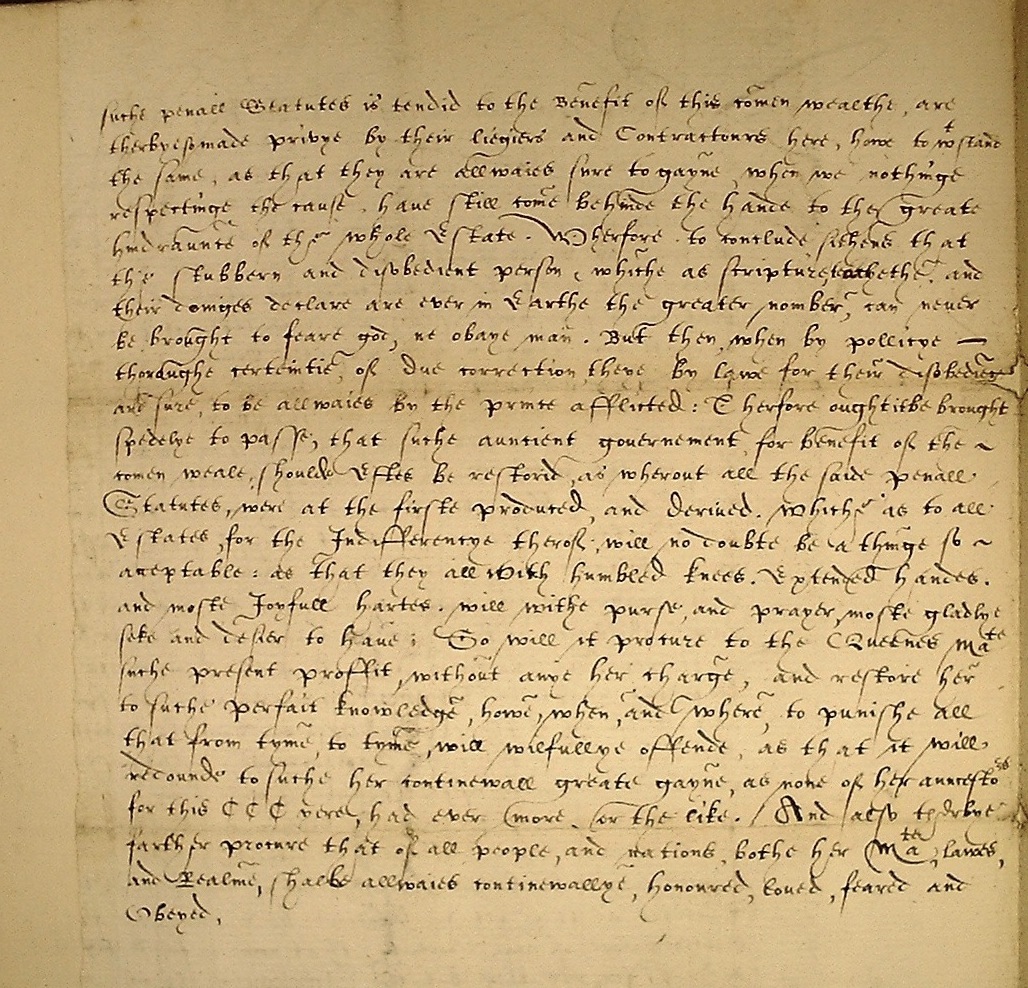 suche penall Statutes is tendid to the Benefit of this comen wealthe, are
therbye so made privye by their liegiers and Contractours here, howe to wtstand
the same, as that they are allwaies sure to gayne, when we nothinge
respectinge the cause, haue still come behinde the hande to the greate
hindraunce of the whole Estate. Wherfore to conclude sithens that
the stubbern and disobedient person, whiche as scripture teachethe, and
their doinges declare are ever in Earthe the greater nomber, can never
be brought to feare god, ne obaye man. But then, when by pollicye —
thoroughe certeintie, of due correction, theye by lawe for their disobedience
are sure, to be allwaies by the prince afflicted: Therfore ought it be brought
spedelye to passe, that suche auncient governement, for benefit of the ~
comen weale, shoulde Eftes be restorid, as wherout all the saide penall
Statutes, were at the firste produced, and derived. Whiche as to all
Estates, for the Indifferencye therof, will no doubte be a thinge so ~
aceptable: as that they all with humbled knees. Extended handes.
and moste Joyfull hartes. will withe purse, and prayer, moste gladlye
seke and desier to haue: So will it procure to the Queenes Mate
suche present proffit, without anye her charge, and restore her
to suche perfait knowledge, howe, when, and where, to punishe all
that from tyme, to tyme, will wilfullye offende, as that it will
redounde to suche her continewall greate gayne, as none of her auncestors
for this CCC yere, had ever more or the like. And also therbye
farther procure that of all people, and nations, bothe her Mate, lawes,
and Realme, shalbe allwaies continewallye, honoured, loued, feared and
Obeyed,